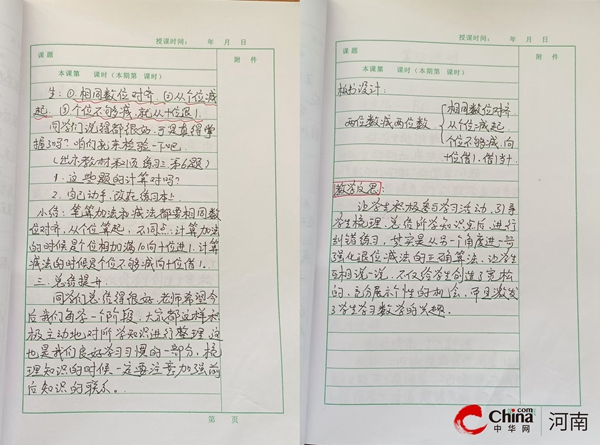 授课时间： 年 月 日
课题
附 件
本课第 课时（本期第 课时）
生：①相同数位对齐 ②从个位减
起，③个位不够减，就从十位退1.
同学们说得都很好，可是真得掌
握了吗？咱们就来检验一下吧.
1、这些题的计算对吗？
2、自己动手，改在练习本上
小结：笔算加法和减法都要相同数
位对齐，从个位算起，不同点：计算加法
的时候是个位相加满10向十位进1，计算
减法的时候是个位不够减向十位借1.
三、总结提升：
同学们总结得很好，老师希望今
后我们每学一个阶段，大家都这样积
极主动地对所学知识进行整理，这
也是我们良好学习习惯的一部分，梳
理知识的时候一定要注意加强前
后知识的联系。
第 页
授课时间： 年 月 日
课题
附 件
本课第 课时（本期第 课时）
板书设计：
相同数位对齐
两位数减两位数 从个位减起
个位不够减，向
十位借1，借1当十
教学反思：
让学生积极参与学习活动，引导
学生梳理、总结所学知识完后，进行
纠错练习，其实是从另一个角度进一步
强化退位减法的正确算法，让学生
互相说一说，不仅给学生创造了宽松
的、充分展示个性的机会，而且激发
了学生学习数学的兴趣.
China.com
中华网
河南